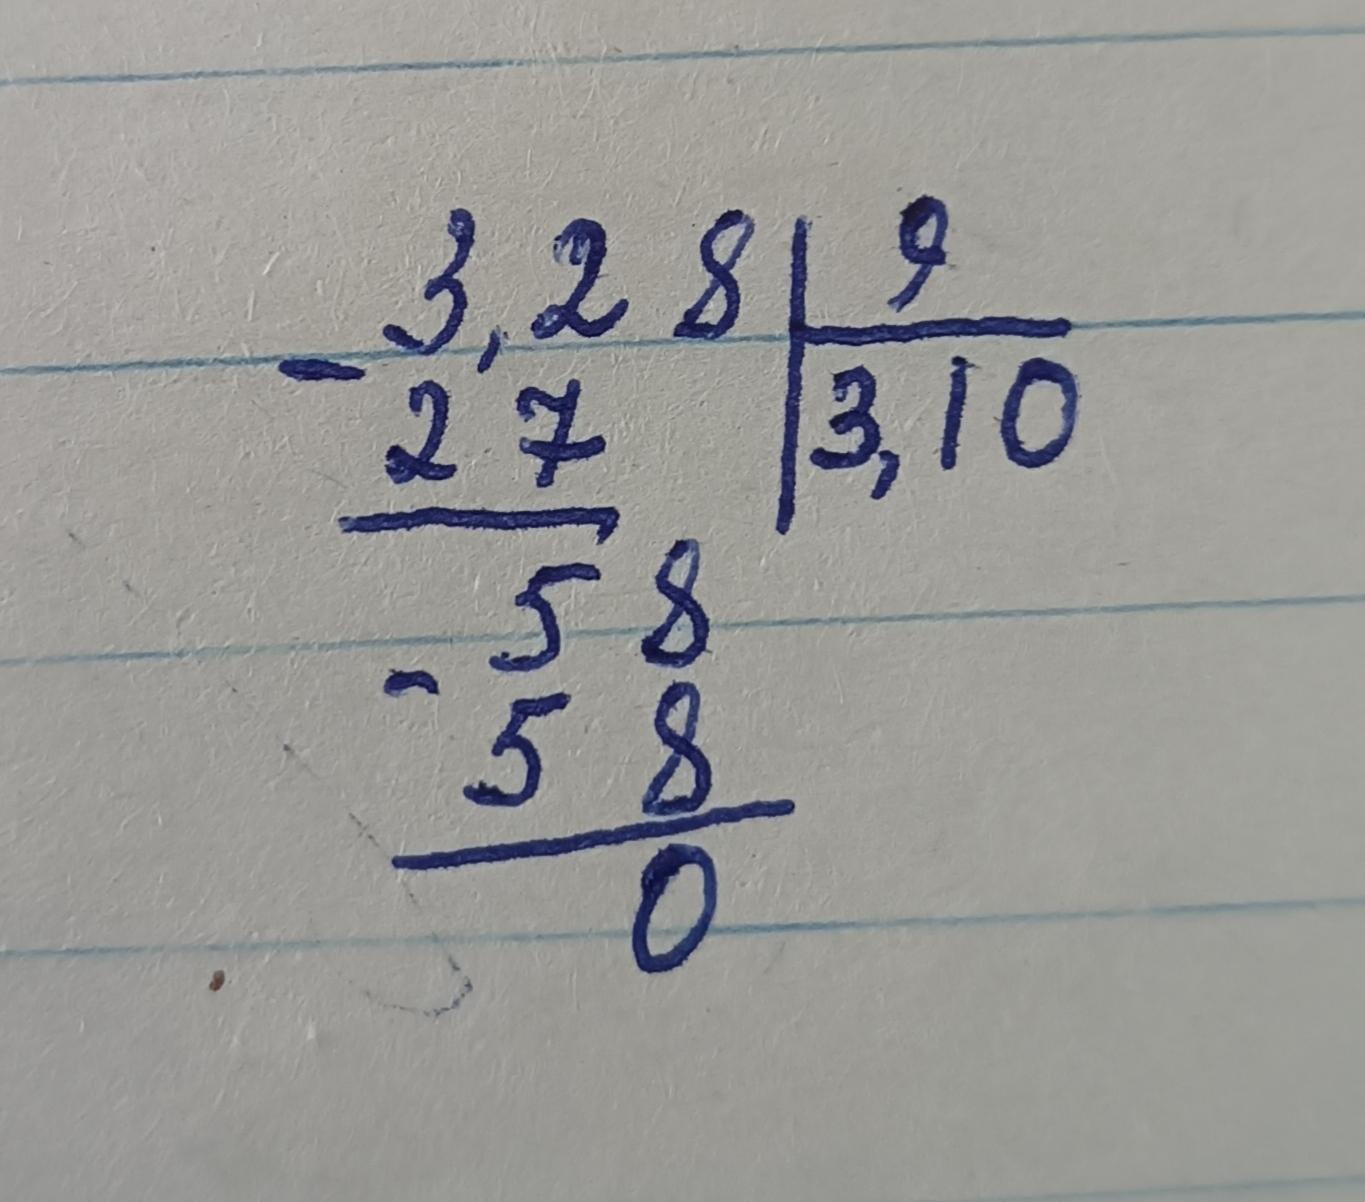 3,28 | 9
- 27 | 3,10
58
- 58
0